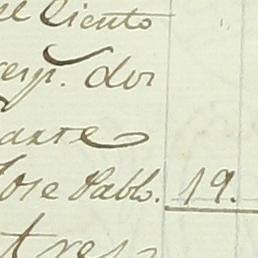 el Ciento
resp. dos
arte
Jose Pablo. 19.
tres